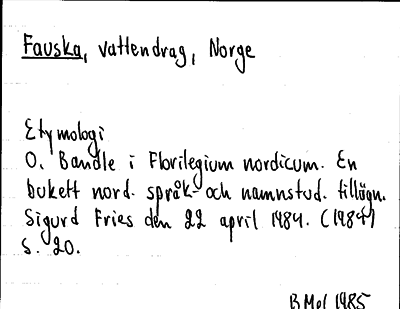 Fauska, vattendrag, Norge
Etymologi
O. Bandle i Florilegium nordicum. En
bukett nord. språk- och namnstud. tillägn.
Sigurd Fries den 22 april 1984. (1984)
S. 20.
B Mel 1985